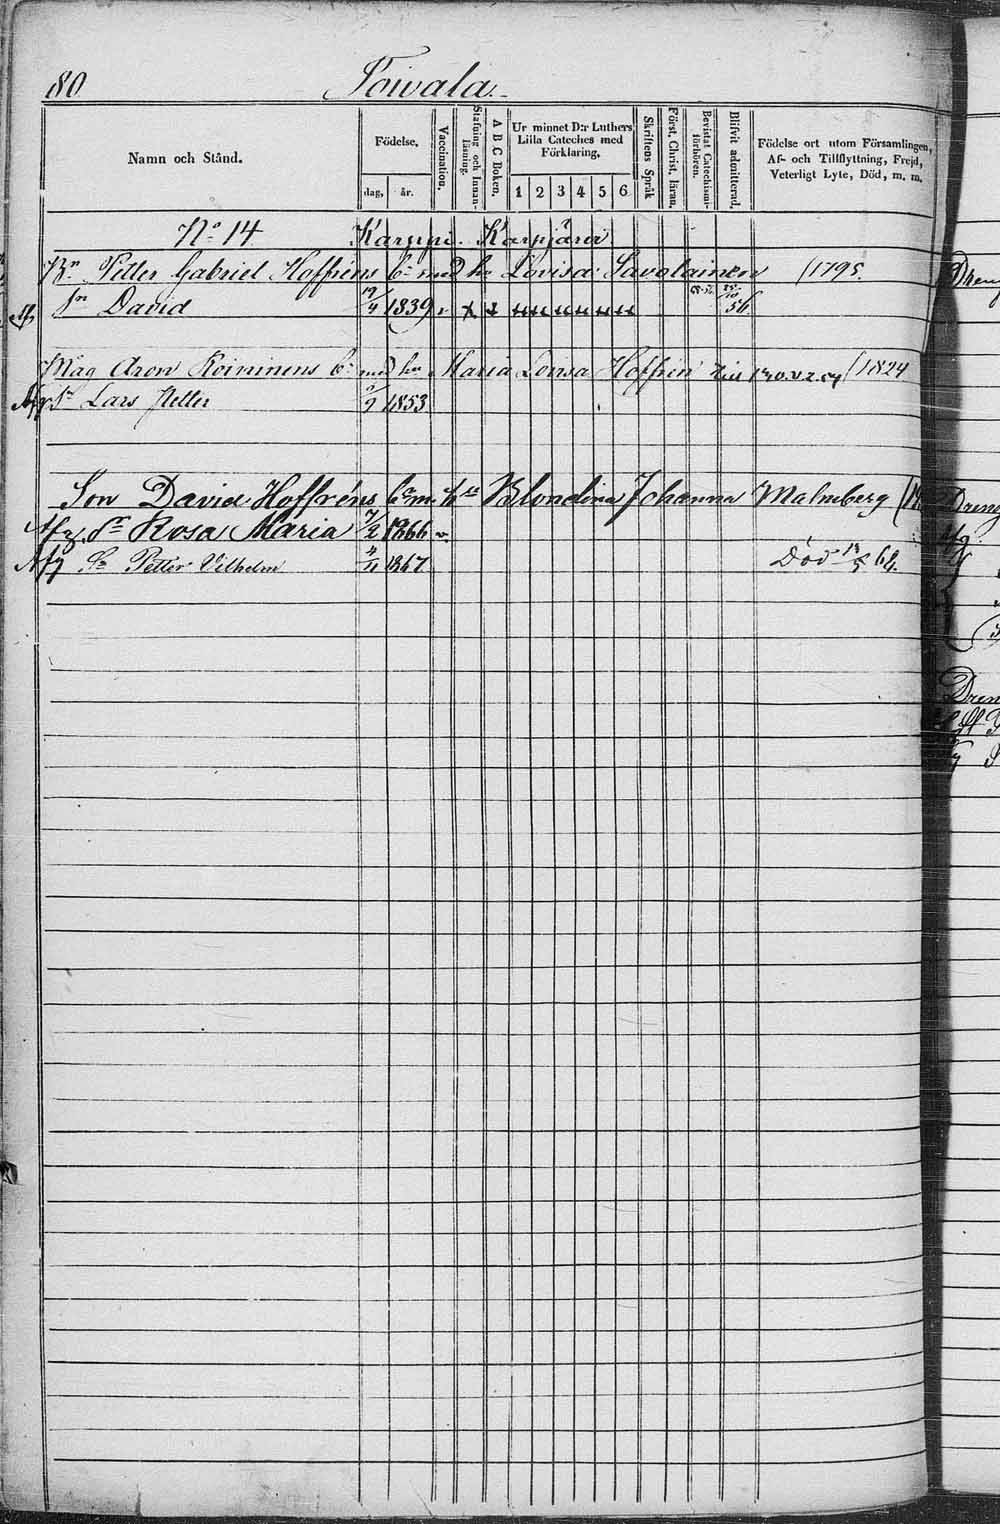 80 Toivala
Namn och Stånd.
Födelse.
dag, år.
Vaccination.
Stafning och Innan-läsning.
A B C Boken.
Ur minnet D:r Luthers
Lilla Cateches med
Förklaring,
1 2 3 4 5 6
Skriftens Språk
Först. Christ. läran.
Bevistat Catechismi-förhören.
Blifvit admitterad.
Födelse ort utom Församlingen,
Af- och Tillflyttning, Frejd,
Veterligt Lyte, Död, m. m.
No 14 Karppi Karpjärvi
Bn Petter Gabriel Hofréns bn med hu Lovisa Savolainen (1795.
Sn David 19/4 1839 v 56
Måg Aron Roininens bn med hu Maria Lovisa Hoffrén (1824
Afg Sn Lars Petter 2/9 1853
Son David Hoffréns bn m. hu Blondina Johanna Malmberg
Afg. Dr Rosa Maria 7/2 1866 v.
Afg Sn Petter Vilhelm 4/11 1867 Död 18/5 68.
Dreng
Dreng
Afg.
Dren